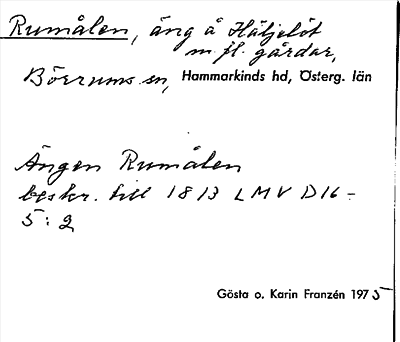 Rumålen, äng å Häljelöt
m. fl. gårdar,
Börrums sn, Hammarkinds hd, Österg. län
Ängen Rumålen
beskr. till 1813 LMV D16-
5:2
Gösta o. Karin Franzén 1975